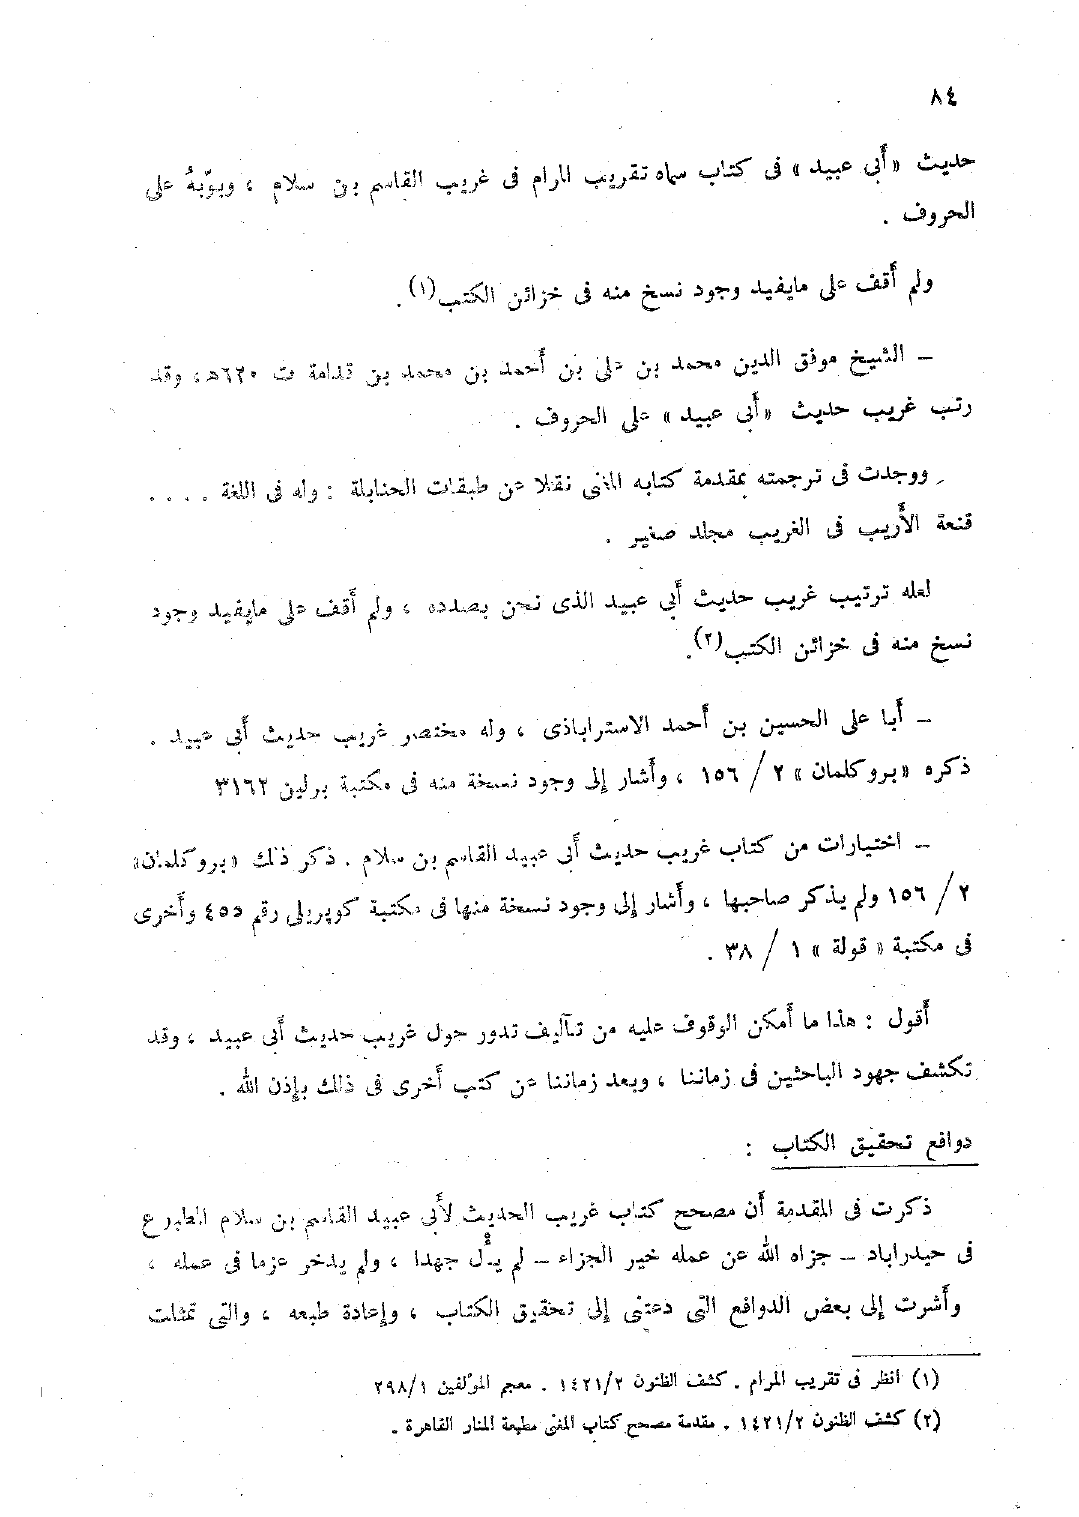 ٨٤
حديث «أبى عبيد» فى كتاب سماه تقريب المرام فى غريب القاسم بن سلام ، وبوّبهُ على
الحروف .
ولم أقف على مايفيد وجود نسخ منه فى خزائن الكتب(١).
– الشيخ موفق الدين محمد بن على بن أحمد بن محمد بن قدامة ت ٦٢٠هـ، وقد
رتب غريب حديث «أبى عبيد» على الحروف .
ووجدت فى ترجمته بمقدمة كتابه المغنى نقلا عن طبقات الحنابلة : وله فى اللغة . . . .
قنعة الأريب فى الغريب مجلد صغير .
لعله ترتيب غريب حديث أبى عبيد الذى نحن بصدده ، ولم أقف على مايفيد وجود
نسخ منه فى خزائن الكتب(٢).
– أبا على الحسين بن أحمد الاستراباذى ، وله مختصر غريب حديث أبى عبيد .
ذكره «بروكلمان» ٢ / ١٥٦ ، وأشار إلى وجود نسخة منه فى مكتبة برلين ٣١٦٢
– اختيارات من كتاب غريب حديث أبى عبيد القاسم بن سلام . ذكر ذلك «بروكلمان»
٢ / ١٥٦ ولم يذكر صاحبها ، وأشار إلى وجود نسخة منها فى مكتبة كوبريلى رقم ٤٥٥ وأخرى
فى مكتبة «قولة» ١ / ٣٨ .
أقول : هذا ما أمكن الوقوف عليه من تآليف تدور حول غريب حديث أبى عبيد ، وقد
تكشف جهود الباحثين فى زماننا ، وبعد زماننا عن كتب أخرى فى ذلك بإذن الله .
دوافع تحقيق الكتاب :
ذكرت فى المقدمة أن مصحح كتاب غريب الحديث لأبى عبيد القاسم بن سلام المطبوع
فى حيدراباد – جزاه الله عن عمله خير الجزاء – لم يألُ جهدا ، ولم يدخر عزما فى عمله ،
وأشرت إلى بعض الدوافع التى دعتنى إلى تحقيق الكتاب ، وإعادة طبعه ، والتى تمثلت
(١) انظر فى تقريب المرام . كشف الظنون ١٤٢١/٢ . معجم المؤلفين ٢٩٨/١
(٢) كشف الظنون ١٤٢١/٢ . مقدمة مصحح كتاب المغنى مطبعة المنار القاهرة .